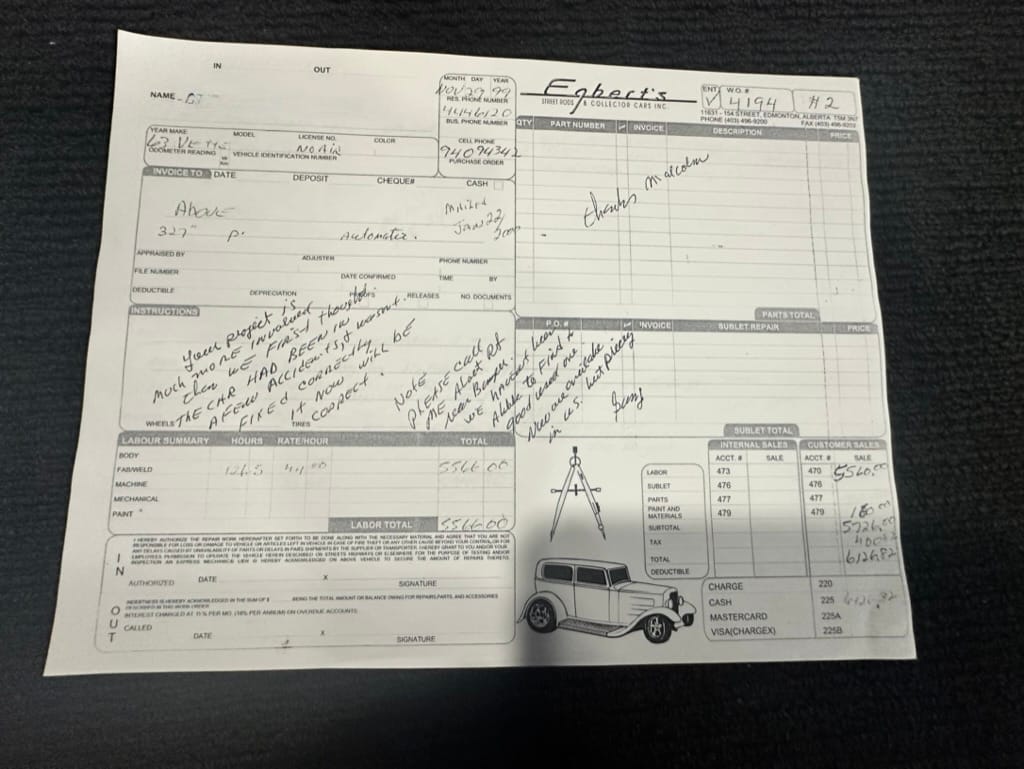 IN OUT
NAME
MONTH DAY YEAR
NOV 29 99
RES. PHONE NUMBER
4446120
BUS. PHONE NUMBER
CELL PHONE
94094342
PURCHASE ORDER
Egbert's
STREET RODS & COLLECTOR CARS INC.
ENT. W.O. #
✓ 4194 #2
11631 - 154 STREET, EDMONTON, ALBERTA T5M 3N7
PHONE (403) 496-9200 FAX (403) 496-9202
YEAR MAKE MODEL LICENSE NO. COLOR
63 Vette No Air
ODOMETER READING VEHICLE IDENTIFICATION NUMBER
INVOICE TO DATE DEPOSIT CHEQUE# CASH
Above
Mailed
Jan 22/
2000
327" P. Automatic.
APPRAISED BY ADJUSTER PHONE NUMBER
FILE NUMBER DATE CONFIRMED TIME BY
DEDUCTIBLE DEPRECIATION PROOFS RELEASES NO. DOCUMENTS
INSTRUCTIONS
Your project is
much more involved
than we first thought.
THE CAR HAD BEEN IN
A FEW ACCIDENTS & wasn't
FIXED CORRECTLY
IT NOW WILL BE
CORRECT.
NOTE
PLEASE CALL
ME About RT
rear Bumper.
we haven't been
Able to Find a
good used one.
New are available
in U.S. best pricing
WHEELS TIRES
QTY PART NUMBER INVOICE DESCRIPTION PRICE
thanks Malcolm
PARTS TOTAL
P.O. # INVOICE SUBLET REPAIR PRICE
SUBLET TOTAL
LABOUR SUMMARY HOURS RATE/HOUR TOTAL
BODY
FAB/WELD 126.5 44.00 5566.00
MACHINE
MECHANICAL
PAINT
LABOR TOTAL 5566.00
INTERNAL SALES CUSTOMER SALES
ACCT. # SALE ACCT. # SALE
LABOR 473 470 5560.00
SUBLET 476 476
PARTS 477 477
PAINT AND MATERIALS 479 479 160.00
SUBTOTAL 5726.00
TAX 400.82
TOTAL 6126.82
DEDUCTIBLE
CHARGE 220
CASH 225 6126.82
MASTERCARD 225A
VISA(CHARGEX) 225B
IN
I HEREBY AUTHORIZE THE REPAIR WORK HEREINAFTER SET FORTH TO BE DONE ALONG WITH THE NECESSARY MATERIAL AND AGREE THAT YOU ARE NOT
RESPONSIBLE FOR LOSS OR DAMAGE TO VEHICLE OR ARTICLES LEFT IN VEHICLE IN CASE OF FIRE THEFT OR ANY OTHER CAUSE BEYOND YOUR CONTROL OR FOR
ANY DELAYS CAUSED BY UNAVAILABILITY OF PARTS OR DELAYS IN PARTS SHIPMENTS BY THE SUPPLIER OR TRANSPORTER. I HEREBY GRANT TO YOU AND/OR YOUR
EMPLOYEES PERMISSION TO OPERATE THE VEHICLE HEREIN DESCRIBED ON STREETS HIGHWAYS OR ELSEWHERE FOR THE PURPOSE OF TESTING AND/OR
INSPECTION AN EXPRESS MECHANICS LIEN IS HEREBY ACKNOWLEDGED ON ABOVE VEHICLE TO SECURE THE AMOUNT OF REPAIRS THERETO.
AUTHORIZED DATE X SIGNATURE
OUT
INDEBTNESS IS HEREBY ACKNOWLEDGED IN THE SUM OF $ BEING THE TOTAL AMOUNT OR BALANCE OWING FOR REPAIRS, PARTS, AND ACCESSORIES
DESCRIBED IN THIS WORK ORDER.
INTEREST CHARGED AT 1½% PER MO. (18% PER ANNUM) ON OVERDUE ACCOUNTS.
CALLED DATE X SIGNATURE